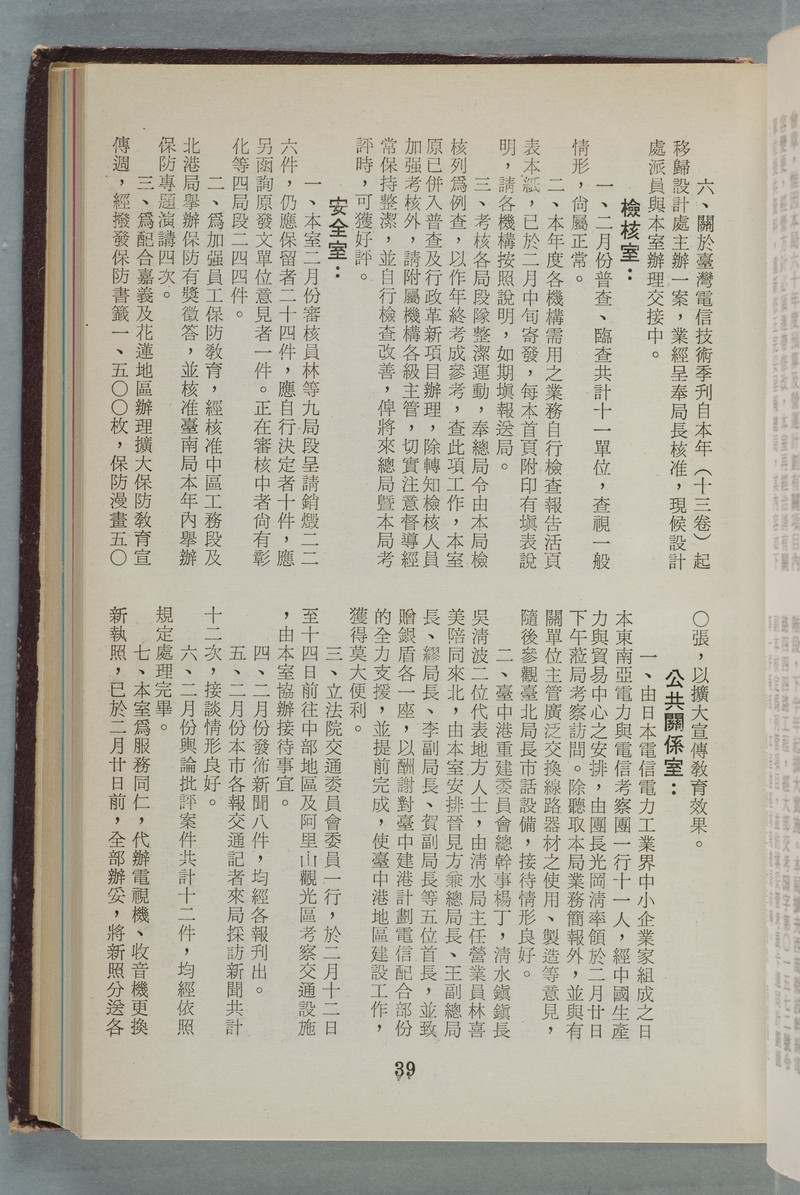 六、關於臺灣電信技術季刊自本年（十三卷）起
移歸設計處主辦一案，業經呈奉局長核准，現候設計
處派員與本室辦理交接中。
檢核室：
一、二月份普查、臨查共計十一單位，查視一般
情形，尙屬正常。
二、本年度各機構需用之業務自行檢查報告活頁
表本紙，已於二月中旬寄發，每本首頁附印有塡表說
明，請各機構按照說明，如期塡報送局。
三、考核各局段隊整潔運動，奉總局令由本局檢
核列爲例查，以作年終考成參考，查此項工作，本室
原已併入普查及行政革新項目辦理，除轉知檢核人員
加强考核外，請附屬機構各級主管，切實注意督導經
常保持整潔，並自行檢查改善，俾將來總局曁本局考
評時，可獲好評。
安全室：
一、本室二月份審核員林等九局段呈請銷燬二二
六件，仍應保留者二十四件，應自行決定者十件，應
另函詢原發文單位意見者一件。正在審核中者尙有彰
化等四局段二四四件。
二、爲加强員工保防敎育，經核准中區工務段及
北港局舉辦保防有獎徵答，並核准臺南局本年內舉辦
保防專題演講四次。
三、爲配合嘉義及花蓮地區辦理擴大保防敎育宣
傳週，經撥發保防書籤一、五〇〇枚，保防漫畫五〇
〇張，以擴大宣傳敎育效果。
公共關係室：
一、由日本電信電力工業界中小企業家組成之日
本東南亞電力與電信考察團一行十一人，經中國生產
力與貿易中心之安排，由團長光岡淸率領於二月廿日
下午蒞局考察訪問。除聽取本局業務簡報外，並與有
關單位主管廣泛交換線路器材之使用、製造等意見，
隨後參觀臺北局長市話設備，接待情形良好。
二、臺中港重建委員會總幹事楊丁，淸水鎭鎭長
吳淸波二位代表地方人士，由淸水局主任營業員林喜
美陪同來北，由本室安排晉見方兼總局長、王副總局
長、繆局長、李副局長、賀副局長等五位首長，並致
贈銀盾各一座，以酬謝對臺中建港計劃電信配合部份
的全力支援，並提前完成，使臺中港地區建設工作，
獲得莫大便利。
三、立法院交通委員會委員一行，於二月十二日
至十四日前往中部地區及阿里山觀光區考察交通設施
，由本室協辦接待事宜。
四、二月份發佈新聞八件，均經各報刋出。
五、二月份本市各報交通記者來局採訪新聞共計
十二次，接談情形良好。
六、二月份輿論批評案件共計十二件，均經依照
規定處理完畢。
七、本室爲服務同仁，代辦電視機、收音機更換
新執照，已於二月廿日前，全部辦妥，將新照分送各
39